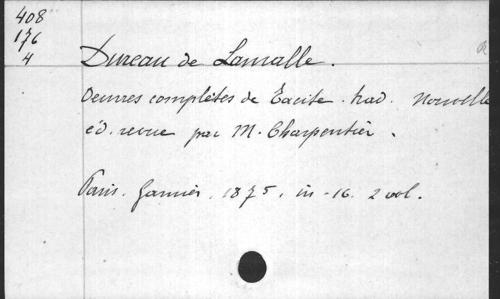 408
176
4
Dureau de Lamalle.
Oeuvres complètes de Tacite. trad. Nouvelle
éd. revue par M. Charpentier.
Paris. Garnier. 1875. in-16. 2 vol.